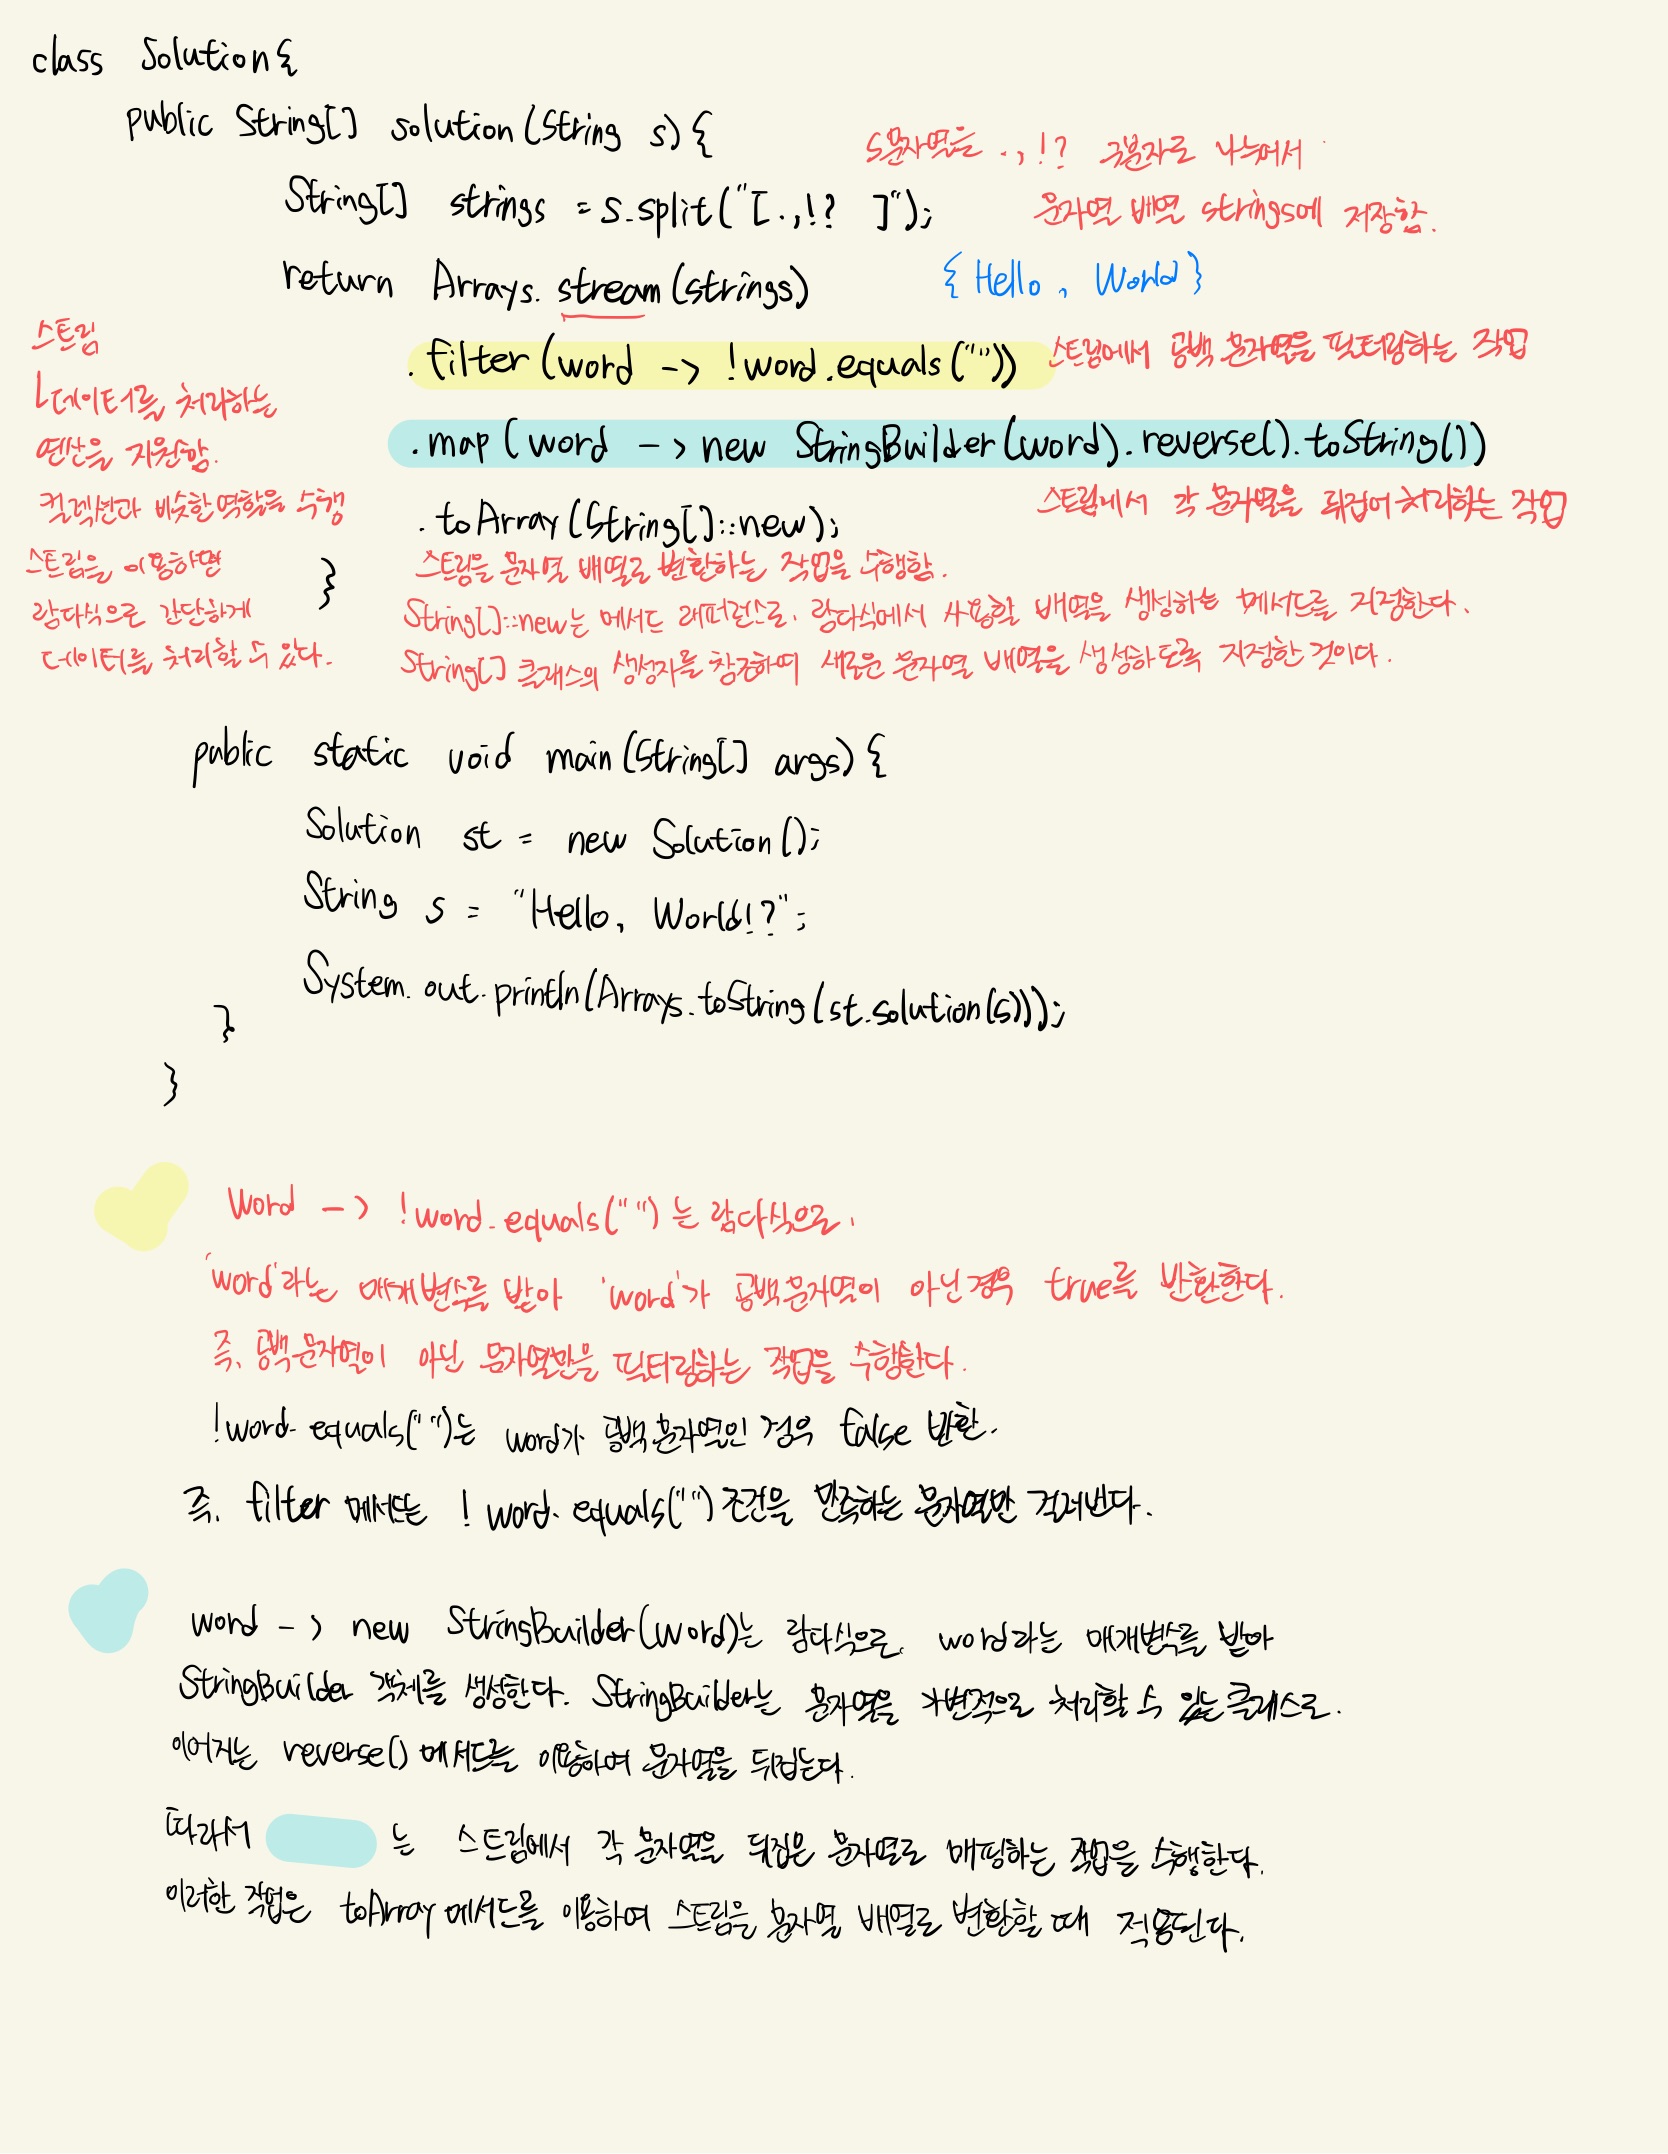 class Solution {
public String[] solution(String s) {
s문자열을 . , ! ? 구분자로 나누어서
String[] strings = s.split("[.,!? ]");
문자열 배열 strings에 저장함.
return Arrays.stream(strings)
{Hello, World}
스트림
ㄴ데이터를 처리하는
연산을 지원함.
컬렉션과 비슷한 역할을 수행
스트림을 이용하면
람다식으로 간단하게
데이터를 처리할 수 있다.
.filter(word -> !word.equals(""))
스트림에서 공백 문자열을 필터링하는 작업
.map(word -> new StringBuilder(word).reverse().toString())
스트림에서 각 문자열을 뒤집어 처리하는 작업
.toArray(String[]::new);
}
스트림을 문자열 배열로 변환하는 작업을 수행함.
String[]::new는 메서드 래퍼런스로, 람다식에서 사용할 배열을 생성하는 메서드를 지정한다.
String[] 클래스의 생성자를 참조하여 새로운 문자열 배열을 생성하도록 지정한 것이다.
public static void main(String[] args) {
Solution st = new Solution();
String s = "Hello, World!?";
System.out.println(Arrays.toString(st.solution(s)));
}
}
word -> !word.equals("")는 람다식으로,
'word'라는 매개변수를 받아 'word'가 공백문자열이 아닌경우 true를 반환한다.
즉, 공백문자열이 아닌 문자열만을 필터링하는 작업을 수행한다.
!word.equals("")는 word가 공백문자열인 경우 false 반환.
즉, filter 메서드는 !word.equals("") 조건을 만족하는 문자열만 걸러낸다.
word -> new StringBuilder(word)는 람다식으로, word라는 매개변수를 받아
StringBuilder 객체를 생성한다. StringBuilder는 문자열을 가변적으로 처리할 수 있는 클래스로,
이어지는 reverse() 메서드를 이용하여 문자열을 뒤집는다.
따라서 는 스트림에서 각 문자열을 뒤집은 문자열로 매핑하는 작업을 수행한다.
이러한 작업은 toArray 메서드를 이용하여 스트림을 문자열 배열로 변환할 때 적용된다.